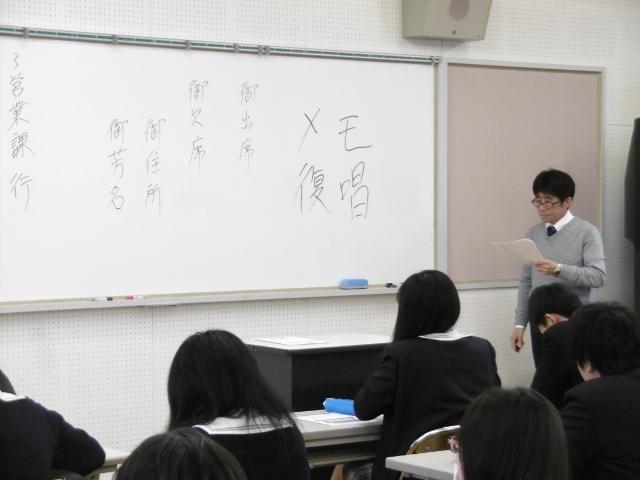 メモ
復唱
御出席
御欠席
御住所
御芳名
営業課行